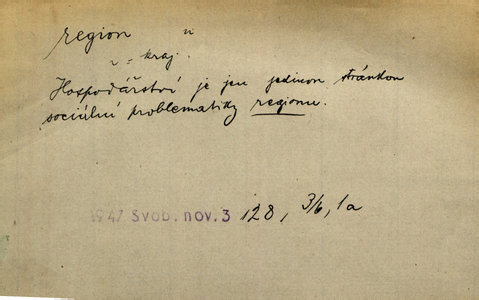 region
= kraj.
Hospodářství je jen jedinou stránkou
sociální problematiky regionu.
1947 Svob. nov. 3 128, 3/6, 1a